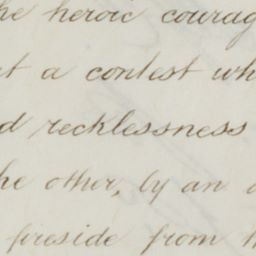 he heroic courag
t a contest wh
d recklessness
he other, by an
fireside from